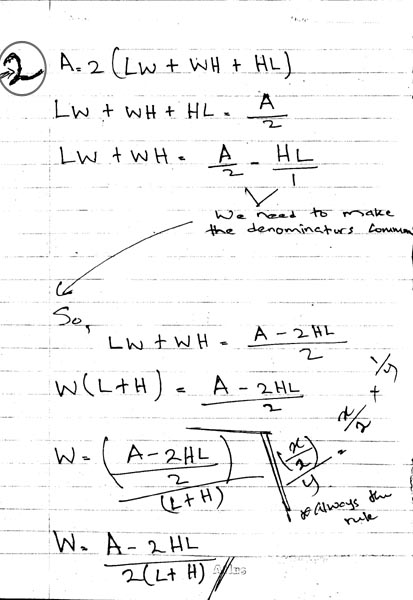 2 A = 2 (LW + WH + HL)
LW + WH + HL = A/2
LW + WH = A/2 - HL/1
We need to make
the denominators common
So,
LW + WH = (A - 2HL)/2
W(L+H) = (A - 2HL)/2
W = ((A - 2HL)/2)/(L+H)
(x/z)/y = x/z + 1/y
*Always the
rule
W = (A - 2HL)/(2(L+H)) //